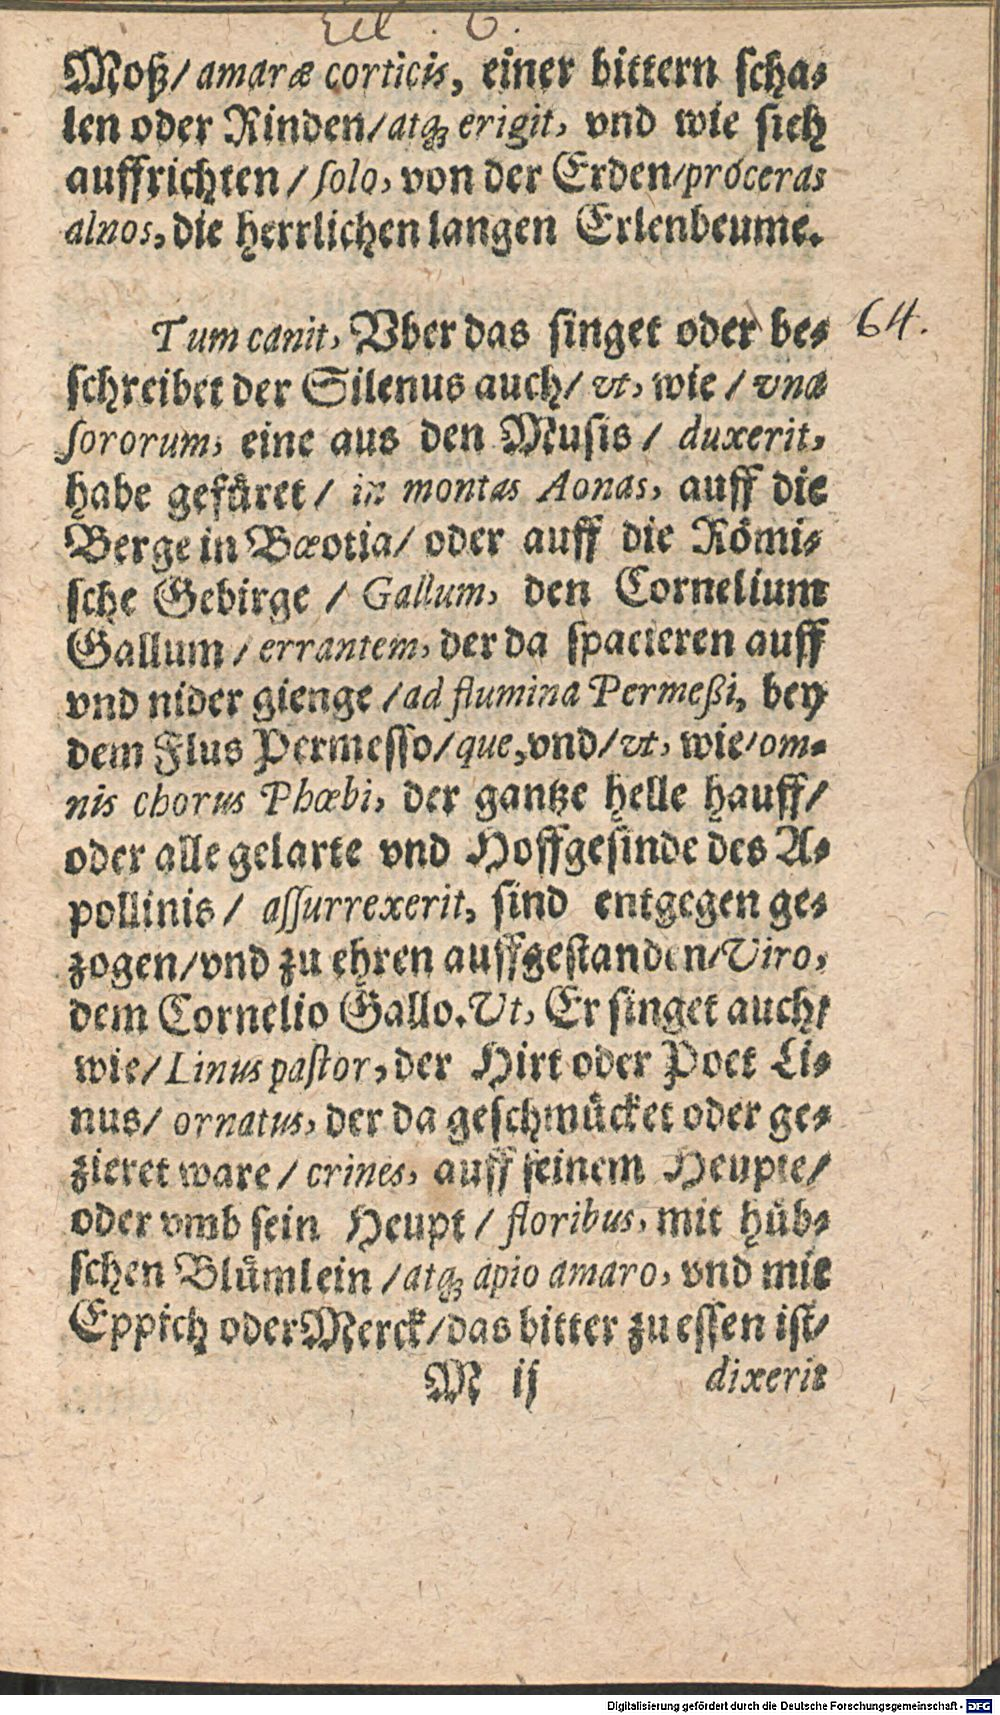 Ecl. 6.
Moß/ amaræ corticis, einer bittern scha-
len oder Rinden/atq; erigit, vnd wie sich
auffrichten / solo, von der Erden/próceras
alnos, die herrlichen langen Erlenbeume.
Tum canit, Vber das singet oder be-
64.
schreibet der Silenus auch/ vt, wie / vna
sororum, eine aus den Musis / duxerit,
habe gefüret / in montas Aonas, auff die
Berge in Bœotia/ oder auff die Römi-
sche Gebirge / Gallum, den Cornelium
Gallum / errantem, der da spacieren auff
vnd nider gienge / ad flumina Permeßi, bey
dem Flus Permesso/ que, vnd/ vt, wie/ om-
nis chorus Phœbi, der gantze helle hauff/
oder alle gelarte vnd Hoffgesinde des A-
pollinis / assurrexerit, sind entgegen ge-
zogen/vnd zu ehren auffgestanden/Viro,
dem Cornelio Gallo. Vt, Er singet auch/
wie/ Linus pastor, der Hirt oder Poet Li-
nus/ ornatus, der da geschmücket oder ge-
zieret ware / crines, auff seinem Heupte/
oder vmb sein Heupt / floribus, mit hüb-
schen Blümlein / atq; apio amaro, vnd mit
Eppich oder Merck/das bitter zu essen ist/
M ij dixerit
Digitalisierung gefördert durch die Deutsche Forschungsgemeinschaft - DFG